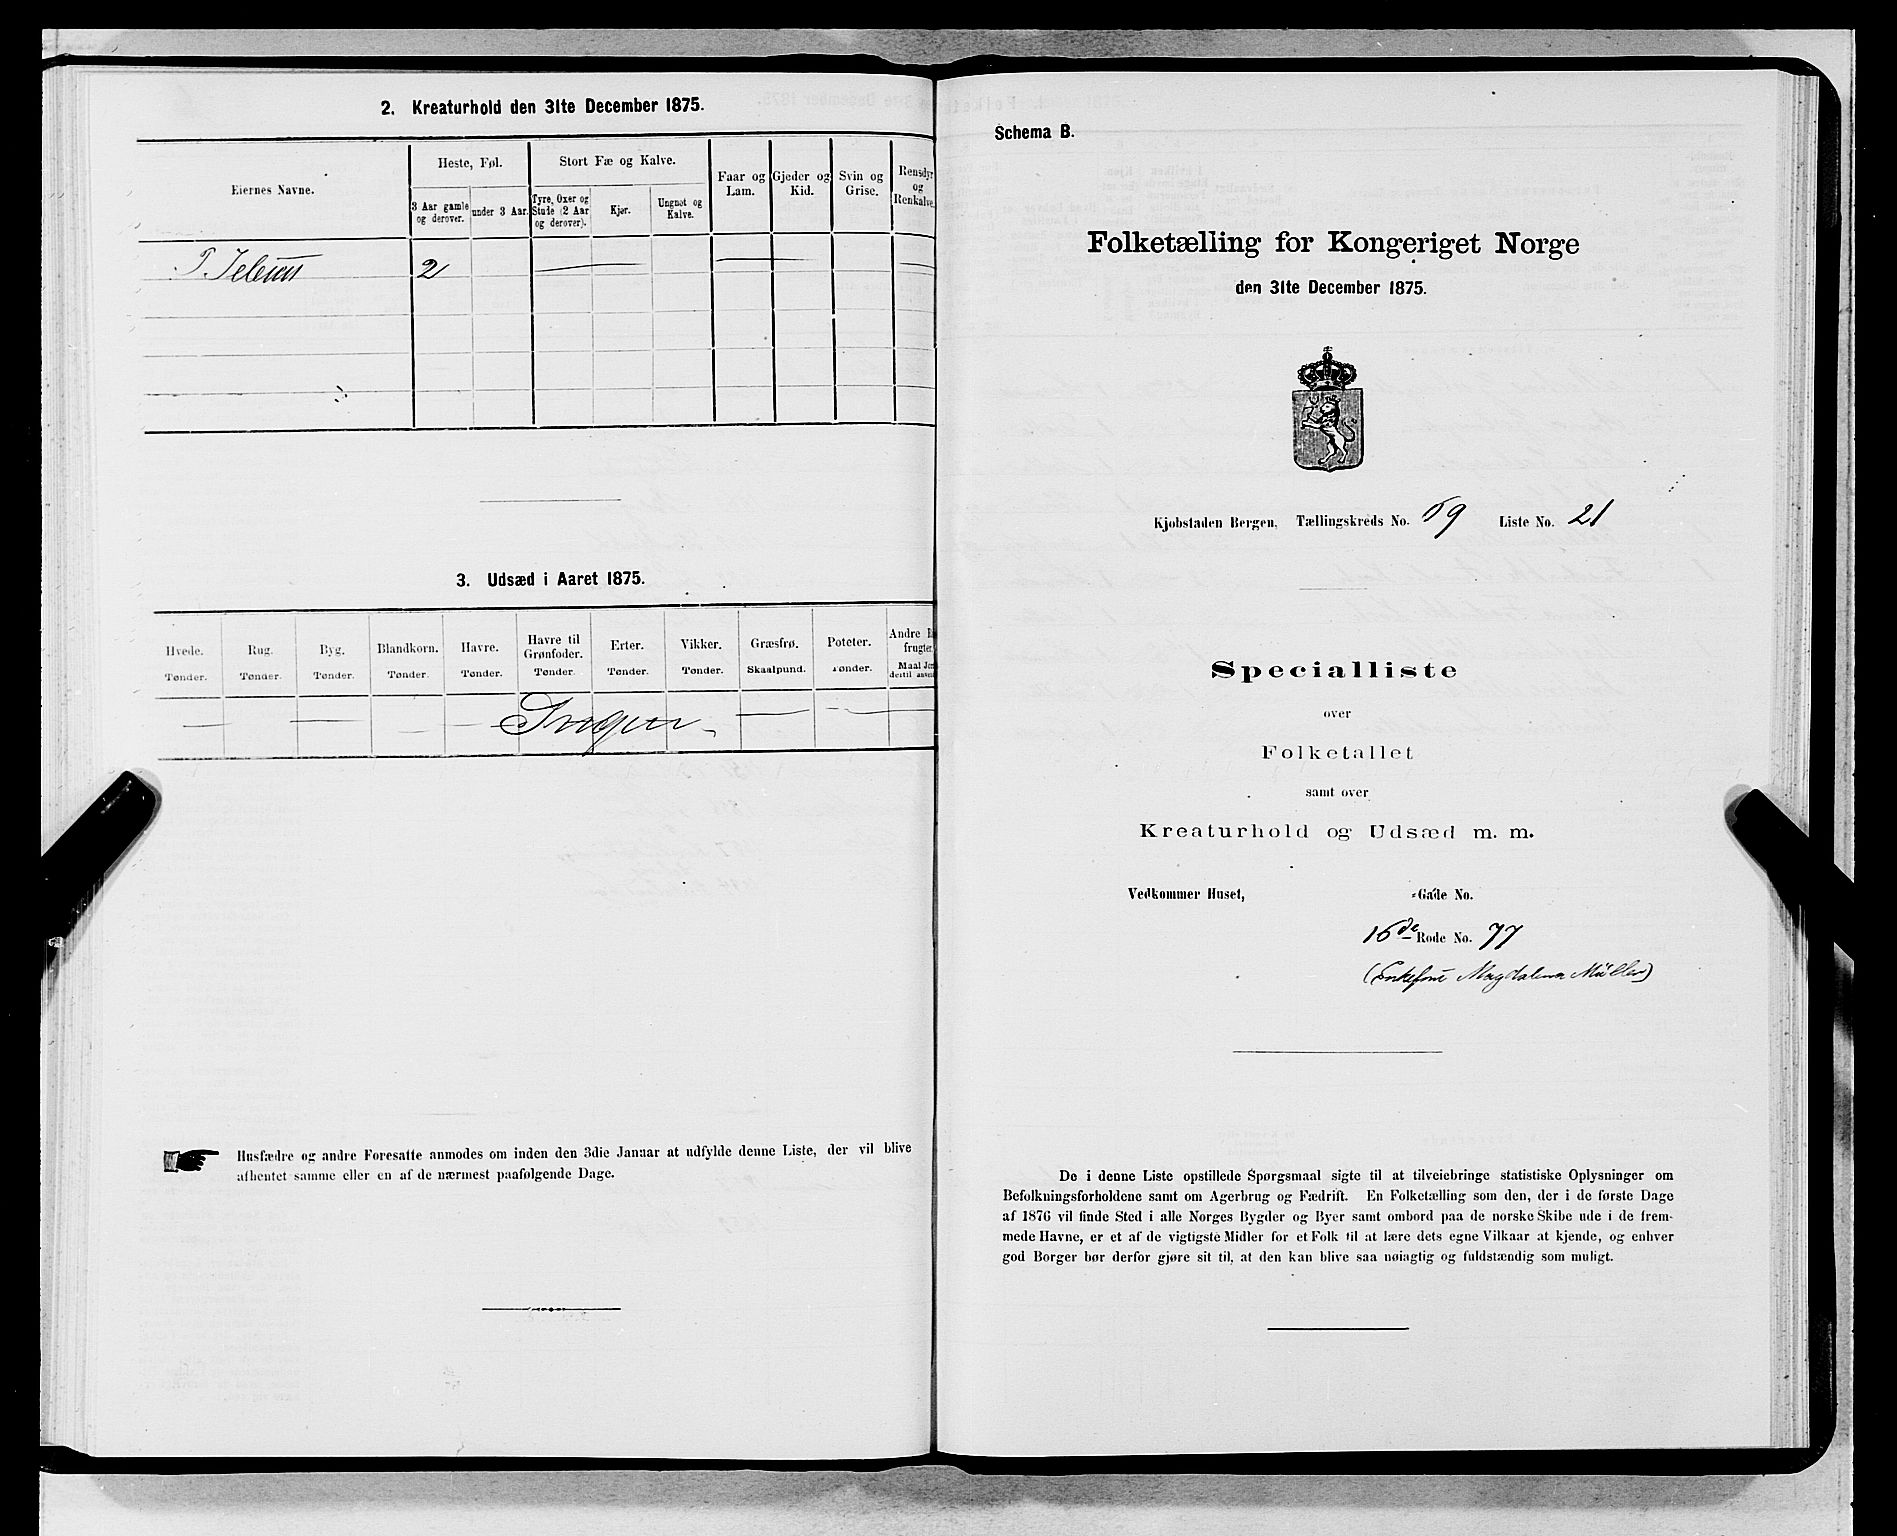 2. Kreaturhold den 31te December 1875.
Eiernes Navne.
Heste, Føl.
Stort Fæ og Kalve.
Faar og Lam.
Gjeder og Kid.
Svin og Grise.
Rensdyr og Renkalve.
3 Aar gamle og derover.
under 3 Aar.
Tyre, Oxer og Stude (2 Aar og derover).
Kjør.
Ungnøt og Kalve.
2
3. Udsæd i Aaret 1875.
Hvede. Rug. Byg. Blandkorn. Havre. Havre til Grønfoder. Erter. Vikker. Græsfrø. Poteter. Andre
frugter.
Tønder. Tønder. Tønder. Tønder. Tønder. Tønder. Tønder. Tønder. Skaalpund. Tønder. Maal
Ingen
Husfædre og andre Foresatte anmodes om inden den 3die Januar at udfylde denne Liste, der vil blive
afhentet samme eller en af de nærmest paafølgende Dage.
Schema B.
Folketælling for Kongeriget Norge
den 31te December 1875.
Kjøbstaden Bergen, Tællingskreds No. 59 Liste No. 21
Specialliste
over
Folketallet
samt over
Kreaturhold og Udsæd m. m.
Vedkommer Huset, -Gade No.
16de Rode No. 77
(Enkefru Magdalena Müller)
De i denne Liste opstillede Spørgsmaal sigte til at tilveiebringe statistiske Oplysninger om
Befolkningsforholdene samt om Agerbrug og Fædrift. En Folketælling som den, der i de første Dage
af 1876 vil finde Sted i alle Norges Bygder og Byer samt ombord paa de norske Skibe ude i de frem-
mede Havne, er et af de vigtigste Midler for et Folk til at lære dets egne Vilkaar at kjende, og enhver
god Borger bør derfor gjøre sit til, at den kan blive saa nøiagtig og fuldstændig som muligt.